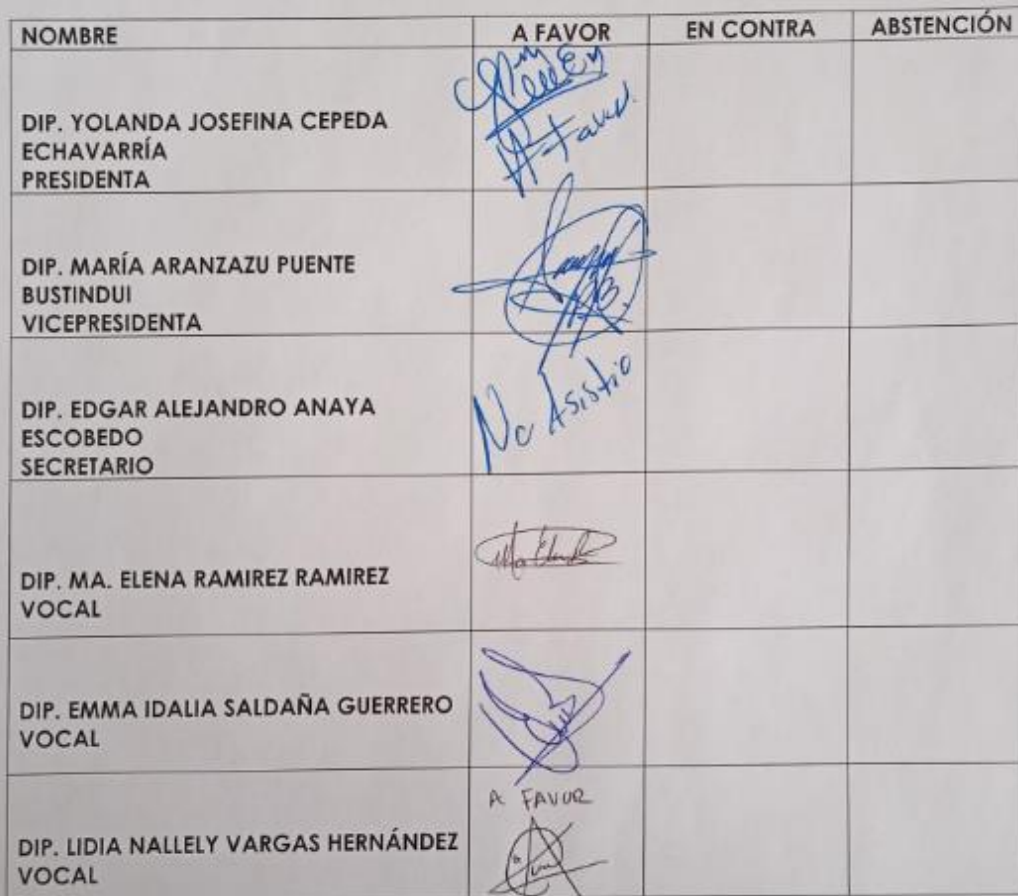 NOMBRE A FAVOR EN CONTRA ABSTENCIÓN
DIP. YOLANDA JOSEFINA CEPEDA
ECHAVARRÍA
PRESIDENTA
A Favor.
DIP. MARÍA ARANZAZU PUENTE
BUSTINDUI
VICEPRESIDENTA
DIP. EDGAR ALEJANDRO ANAYA
ESCOBEDO
SECRETARIO
No Asistio
DIP. MA. ELENA RAMIREZ RAMIREZ
VOCAL
DIP. EMMA IDALIA SALDAÑA GUERRERO
VOCAL
A FAVOR
DIP. LIDIA NALLELY VARGAS HERNÁNDEZ
VOCAL